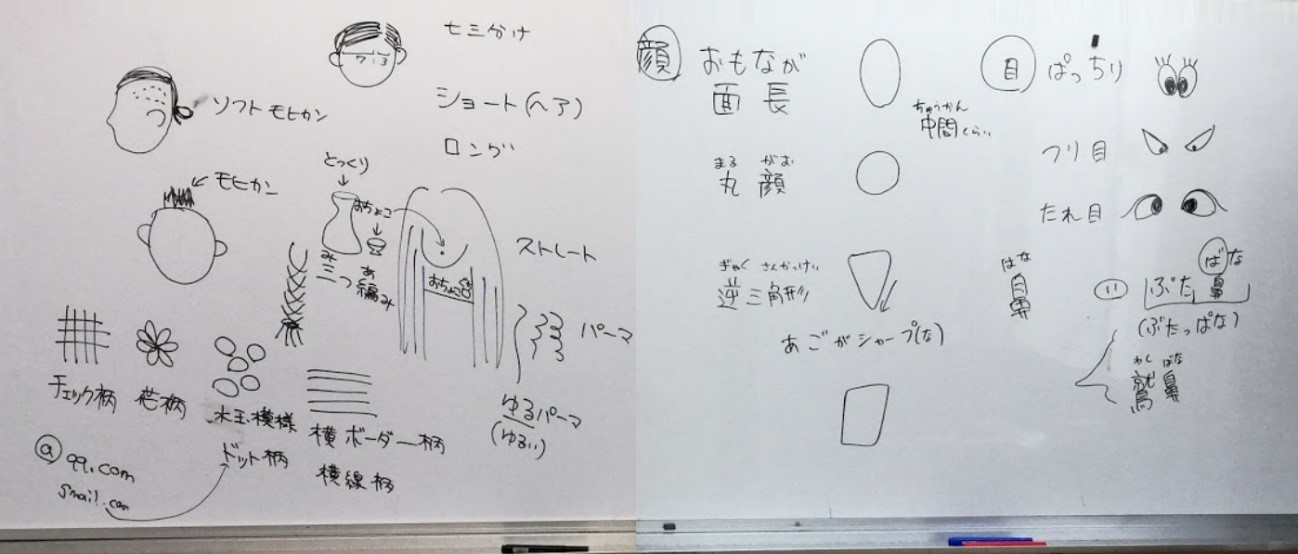 七三分け
7:3
ソフトモヒカン
ショート(ヘア)
ロング
モヒカン
とっくり
おちょこ
み あ
三つ編み
おちょこ
ストレート
パーマ
ゆるパーマ
(ゆるい)
チェック柄
花柄
水玉模様
ドット柄
横ボーダー柄
横線柄
@qq.com
gmail.com
顔
おもなが
面長
ちゅうかん
中間くらい
まる がお
丸顔
ぎゃく さんかっけい
逆三角形
あごがシャープ(な)
目
ぱっちり
つり目
たれ目
はな
鼻
ばな
ぶた鼻
(ぶたっぱな)
わし ばな
鷲鼻